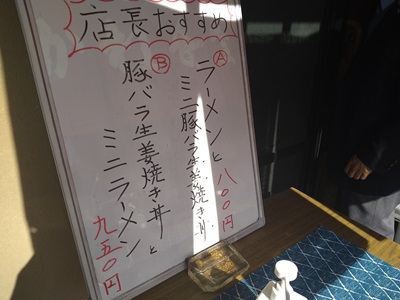 店長おすすめ
Ⓐ
ラーメンと
ミニ豚バラ生姜焼き丼
八〇〇円
Ⓑ
豚バラ生姜焼き丼と
ミニラーメン
九五〇円